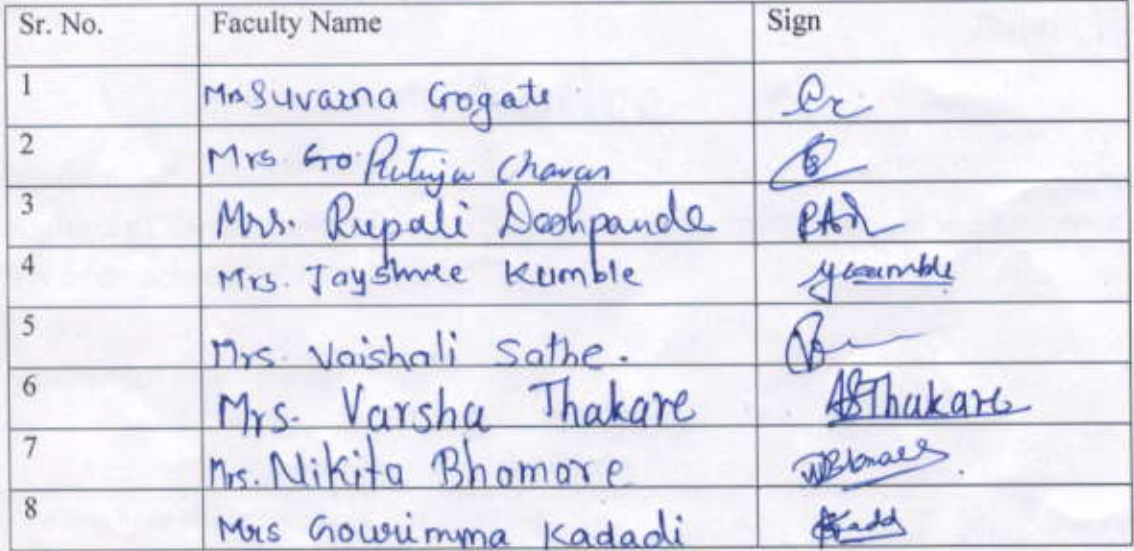 Sr. No. Faculty Name Sign
1 Mrs Suvarna Gogate
2 Mrs. Rutuja Chavan
3 Mrs. Rupali Deshpande
4 Mrs. Jayshree Kumble
5 Mrs. Vaishali Sathe.
6 Mrs. Varsha Thakare Thakare
7 Mrs. Nikita Bhomore
8 Mrs Gowrimma Kadadi